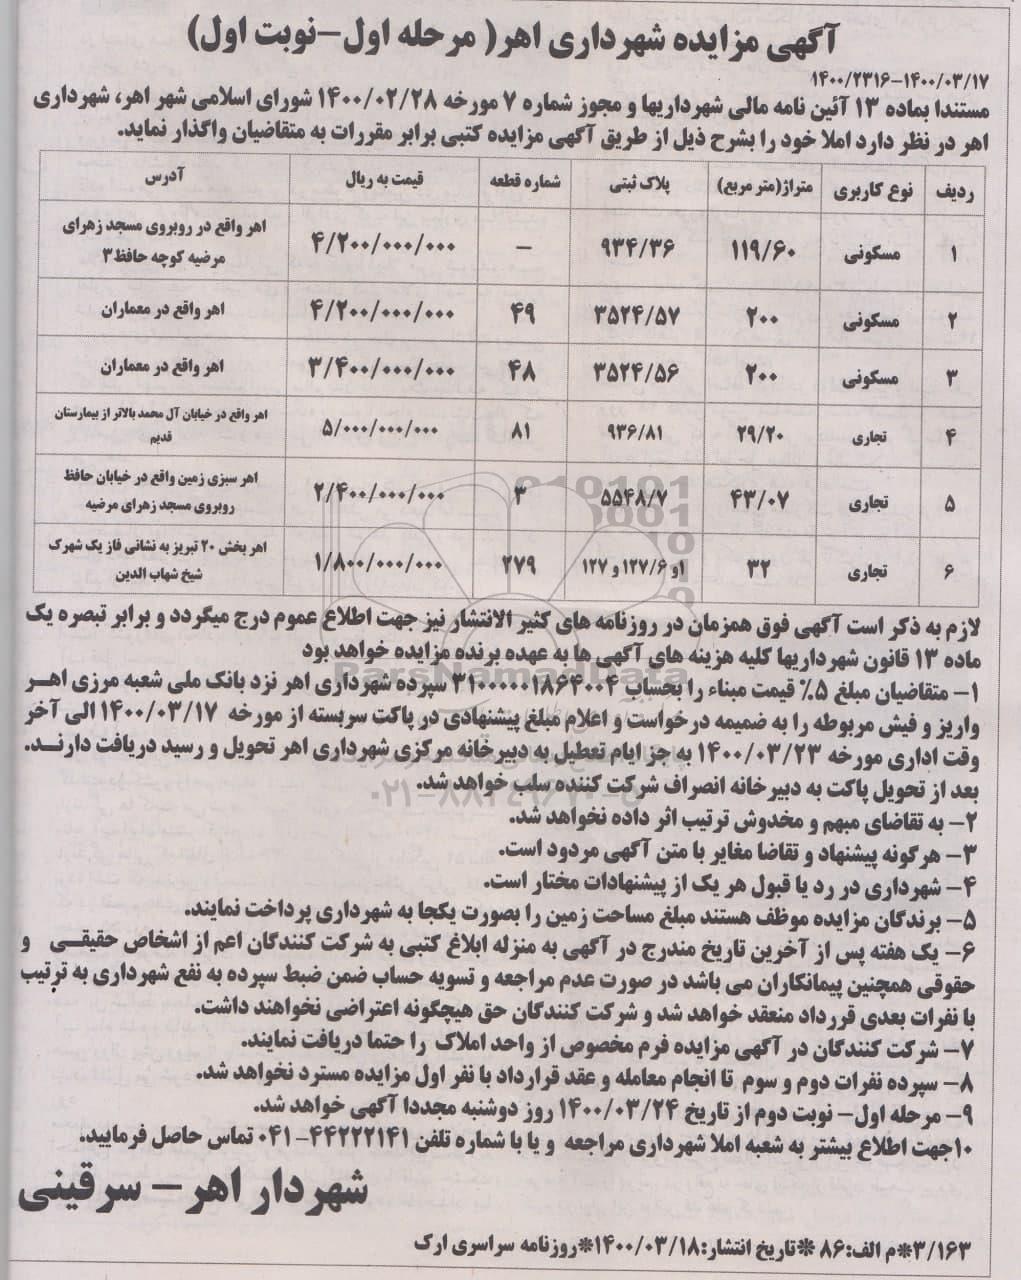 آگهی مزایده شهرداری اهر( مرحله اول-نوبت اول)
۱۴۰۰/۲۳۱۶-۱۴۰۰/۰۳/۱۷
مستندا بماده ۱۳ آئین نامه مالی شهرداریها و مجوز شماره ۷ مورخه ۱۴۰۰/۰۲/۲۸ شورای اسلامی شهر اهر، شهرداری
اهر در نظر دارد املا خود را بشرح ذیل از طریق آگهی مزایده کتبی برابر مقررات به متقاضیان واگذار نماید.
ردیف نوع کاربری متراژ(متر مربع) پلاک ثبتی شماره قطعه قیمت به ریال آدرس
۱ مسکونی ۱۱۹/۶۰ ۹۳۴/۳۶ – ۴/۲۰۰/۰۰۰/۰۰۰ اهر واقع در روبروی مسجد زهرای
مرضیه کوچه حافظ۳
۲ مسکونی ۲۰۰ ۳۵۲۴/۵۷ ۴۹ ۴/۲۰۰/۰۰۰/۰۰۰ اهر واقع در معماران
۳ مسکونی ۲۰۰ ۳۵۲۴/۵۶ ۴۸ ۳/۴۰۰/۰۰۰/۰۰۰ اهر واقع در معماران
۴ تجاری ۲۹/۲۰ ۹۳۶/۸۱ ۸۱ ۵/۰۰۰/۰۰۰/۰۰۰ اهر واقع در خیابان آل محمد بالاتر از بیمارستان
قدیم
۵ تجاری ۴۳/۰۷ ۵۵۴۸/۷ ۳ ۲/۴۰۰/۰۰۰/۰۰۰ اهر سبزی زمین واقع در خیابان حافظ
روبروی مسجد زهرای مرضیه
۶ تجاری ۳۲ ۱و ۱۲۷/۶ و ۱۲۷ ۲۷۹ ۱/۸۰۰/۰۰۰/۰۰۰ اهر بخش ۲۰ تبریز به نشانی فاز یک شهرک
شیخ شهاب الدین
لازم به ذکر است آگهی فوق همزمان در روزنامه های کثیر الانتشار نیز جهت اطلاع عموم درج میگردد و برابر تبصره یک
ماده ۱۳ قانون شهرداریها کلیه هزینه های آگهی ها به عهده برنده مزایده خواهد بود
ParsNamadData
۱- متقاضیان مبلغ ۵٪ قیمت مبناء را بحساب ۳۱۰۰۰۰۰۱۸۶۴۰۰۴ سپرده شهرداری اهر نزد بانک ملی شعبه مرزی اهر
واریز و فیش مربوطه را به ضمیمه درخواست و اعلام مبلغ پیشنهادی در پاکت سربسته از مورخه ۱۴۰۰/۰۳/۱۷ الی آخر
وقت اداری مورخه ۱۴۰۰/۰۳/۲۳ به جز ایام تعطیل به دبیرخانه مرکزی شهرداری اهر تحویل و رسید دریافت دارند.
بعد از تحویل پاکت به دبیرخانه انصراف شرکت کننده سلب خواهد شد.
۲- به تقاضای مبهم و مخدوش ترتیب اثر داده نخواهد شد.
۳- هرگونه پیشنهاد و تقاضا مغایر با متن آگهی مردود است.
۴- شهرداری در رد یا قبول هر یک از پیشنهادات مختار است.
۵- برندگان مزایده موظف هستند مبلغ مساحت زمین را بصورت یکجا به شهرداری پرداخت نمایند.
۶- یک هفته پس از آخرین تاریخ مندرج در آگهی به منزله ابلاغ کتبی به شرکت کنندگان اعم از اشخاص حقیقی و
حقوقی همچنین پیمانکاران می باشد در صورت عدم مراجعه و تسویه حساب ضمن ضبط سپرده به نفع شهرداری به ترتیب
با نفرات بعدی قررداد منعقد خواهد شد و شرکت کنندگان حق هیچگونه اعتراضی نخواهند داشت.
۷- شرکت کنندگان در آگهی مزایده فرم مخصوص از واحد املاک را حتما دریافت نمایند.
۸- سپرده نفرات دوم و سوم تا انجام معامله و عقد قرارداد با نفر اول مزایده مسترد نخواهد شد.
۹- مرحله اول- نوبت دوم از تاریخ ۱۴۰۰/۰۳/۲۴ روز دوشنبه مجددا آگهی خواهد شد.
۱۰جهت اطلاع بیشتر به شعبه املا شهرداری مراجعه و یا با شماره تلفن ۴۴۲۲۲۱۴۱-۰۴۱ تماس حاصل فرمایید.
شهردار اهر – سرقینی
۳/۱۶۳*م الف:۸۶*تاریخ انتشار:۱۴۰۰/۰۳/۱۸*روزنامه سراسری ارک